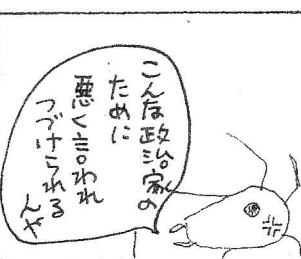 こんな政治家の
ために
悪く言われ
つづけられる
んや